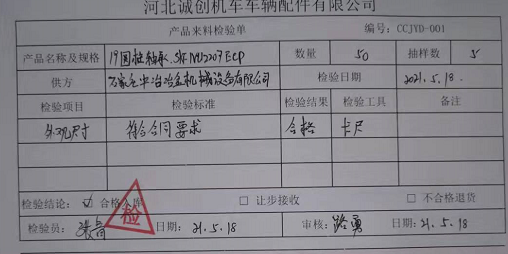 河北诚创机车车辆配件有限公司
产品来料检验单 编号：CCJYD-001
产品名称及规格 轴承 SKF NU2207ECP 数量 50 抽样数 5
供方 石家庄 冶金机械设备有限公司 检验日期 2021.5.18.
检验项目 检验标准 检验结果 检验工具 备注
外观尺寸 符合合同要求 合格 卡尺
检验结论： ☑ 合格入库 □ 让步接收 □ 不合格退货
检
检验员： 日期：21.5.18 审核：路勇 日期：21.5.18